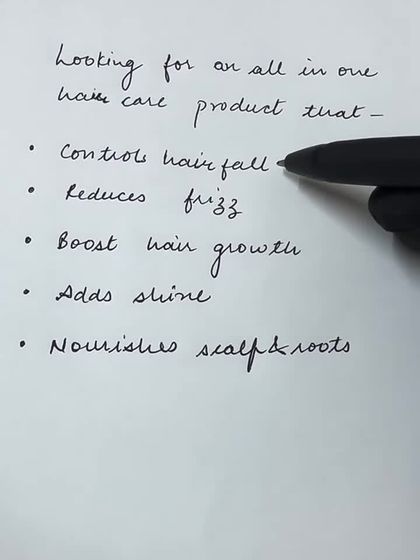 Looking for an all in one
hair care product that -
• Controls hairfall
• Reduces frizz
• Boost hair growth
• Adds shine
• Nourishes scalp & roots